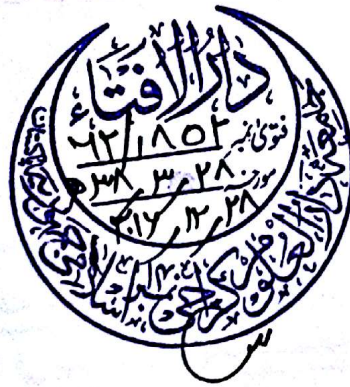 دارالافتاء
فتویٰ نمبر ۱۸۵۲/۶۲
مورخہ ۲۸/۳/۳۸ھ
۲۸/۱۲/۲۰۱۶
جامعہ دارالعلوم کراچی